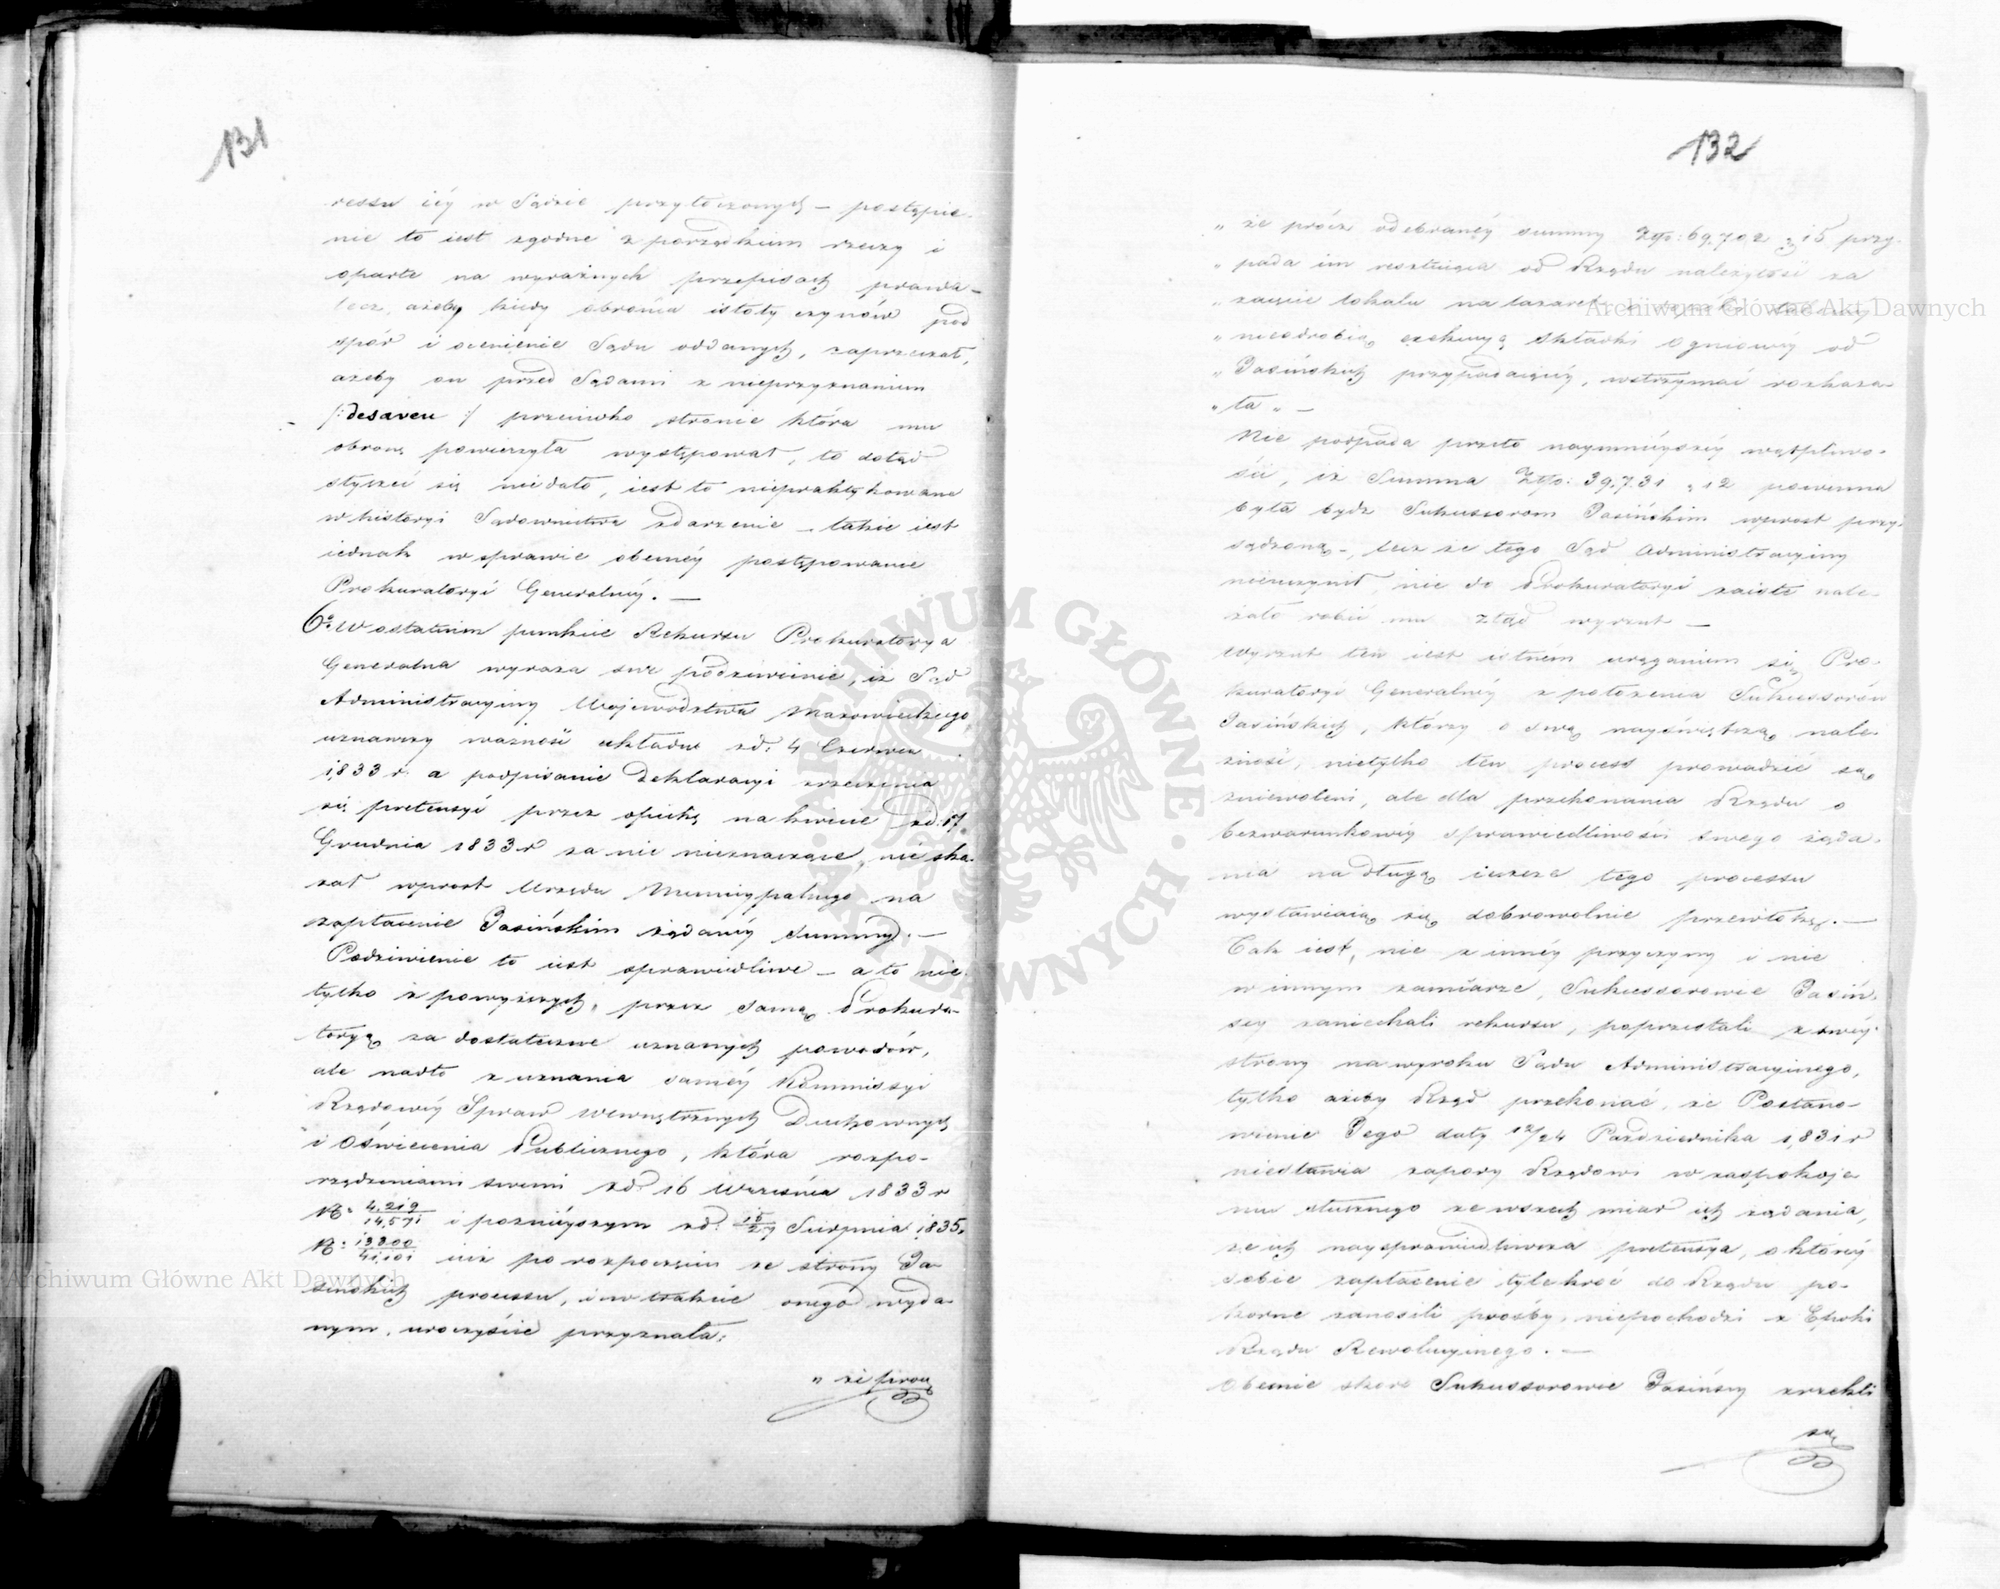 131
ressu iéy w Sądzie przytoczonych – postępie-
nie to iest zgodne z porządkiem rzeczy i
oparte na wyraźnych przepisach prawa –
lecz, ażeby kiedy obrońca istoty czynów pod
spór i ocenienie Sądu oddanych, zaprzeczał,
ażeby on przed Sądami z nieprzyznaniem
/: desaveu :/ przeciwko stronie która mu
obronę powierzyła występował, to dotąd
słyszeć się niedało, iest to niepraktykowane
w historyi Sądownictwa zdarzenie – takie iest
iednak w sprawie obecnéy postępowanie
Prokuratoryi Generalnéy. —
6o W ostatnim punkcie Rekursu Prokuratorya
Generalna wyraża swe podziwienie, iż Sąd
Administracyiny Województwa Mazowieckiego,
uznawszy ważność układu zd: 4 Czerwca
1833 r. a podpisanie Deklaracyi zrzeczenia
się pretensyi przez opiekę na kwicie zd: 17
Grudnia 1833 r za nic nieznaczące, nie ska-
zał wprost Urzędu Municypalnego na
zapłacenie Jasińskim żądanéy summy. —
Podziwienie to iest sprawiedliwe – a to nie-
tylko z powyższych, przez samą Prokura-
toryą za dostateczne uznanych powodów,
ale nadto z uznania saméy Kommissyi
Rządowéy Spraw Wewnętrznych Duchownych
i Oświecenia Publicznego, która rozpo-
rządzeniami swemi zd: 16 Września 1833 r
N: 4,219/14,571 i poźnieyszym zd: 15/27 Sierpnia 1835,
N: 13200/41,101 iuż po rozpoczęciu ze strony Ja-
sińskich processu, i w trakcie onego wyda-
nym, uroczyście przyznała:
„ że prócz
132
„ że prócz odebranéy summy Złp: 69,702 „ 15 przy-
„ pada im resztuiąca od Rządu należytość za
„ zaięcie lokalu na lazaret
„ nieodrobią exekucyą składki ogniowéy od
„ Jasińskich przypadaiącéy, wstrzymać rozkaza-
„ ła „ —
Nie podpada przeto naymnieyszéy wątpliwo-
ści, iż Summa Złp: 39,731 „ 12 powinna
była bydź Sukcessorom Jasińskim wprost przy-
sądzoną –, lecz że tego Sąd Administracyiny
nieuczynił, nie do Prokuratoryi zaiste nale-
żało robić mu ztąd wyrzut —
Wyrzut ten iest istném urąganiem się Pro-
kuratoryi Generalnéy z położenia Sukcessorów
Jasińskich, którzy o swą nayświętszą nale-
żność, nietylko ten process prowadzić są
zniewoleni, ale dla przekonania Rządu o
bezwarunkowéy sprawiedliwości swego żąda-
nia na długą ieszcze tego processu
wystawiaią się dobrowolnie przewłokę. —
Tak iest, nie z innéy przyczyny i nie
w innym zamiarze, Sukcessorowie Jasiń-
scy zaniechali rekursu, poprzestali z swéy
strony na wyroku Sądu Administracyinego,
tylko ażeby Rząd przekonać, że Postano-
wienie Jego daty 12/24 Października 1831 r
niestawia zapory Rządowi w zaspokoje-
niu słusznego ze wszech miar ich żądania,
że ich naysprawiedliwsza pretensya, o któréy
sobie zapłacenie tylekroć do Rządu po-
korne zanosili prośby, niepochodzi z Epoki
Rządu Rewolucyinego. —
Obecnie skoro Sukcessorowie Jasińscy zrzekli
się
Archiwum Główne Akt Dawnych
Archiwum Główne Akt Dawnych
ARCHIWUM GŁÓWNE · AKT DAWNYCH ·